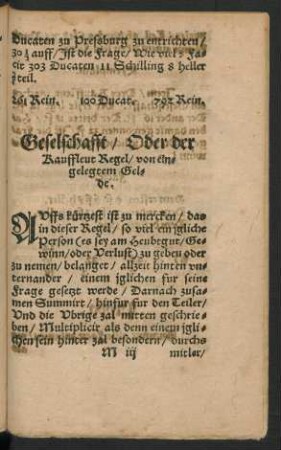 Ducaten zu Presburg zu entrichten /
auff / Ist die Frage / Wie vil? Fa-
cit 303 Ducaten 11 Schilling 8 heller
teil.
Rein. 100 Ducat. 792 Rein.
Geselschafft / Oder der
Kauffleut Regel / von ein-
gelegtem Gel-
de.
AUffs kürtzest ist zu mercken / das
in dieser Regel / so viel ein igliche
Person (es sey am Heubtgut / Ge-
winn / oder Verlust) zu geben oder
zu nemen / belanget / allzeit hinten vn-
ternander / einem jglichen fur seine
Frage gesetzt werde / Darnach zusa-
men Summirt / hinfur fur den Teiler /
Vnd die Vbrige zal mitten geschrie-
ben / Multiplicir als denn einem jgli-
chen sein hinter zal besondern / durchs
M iij mitler /